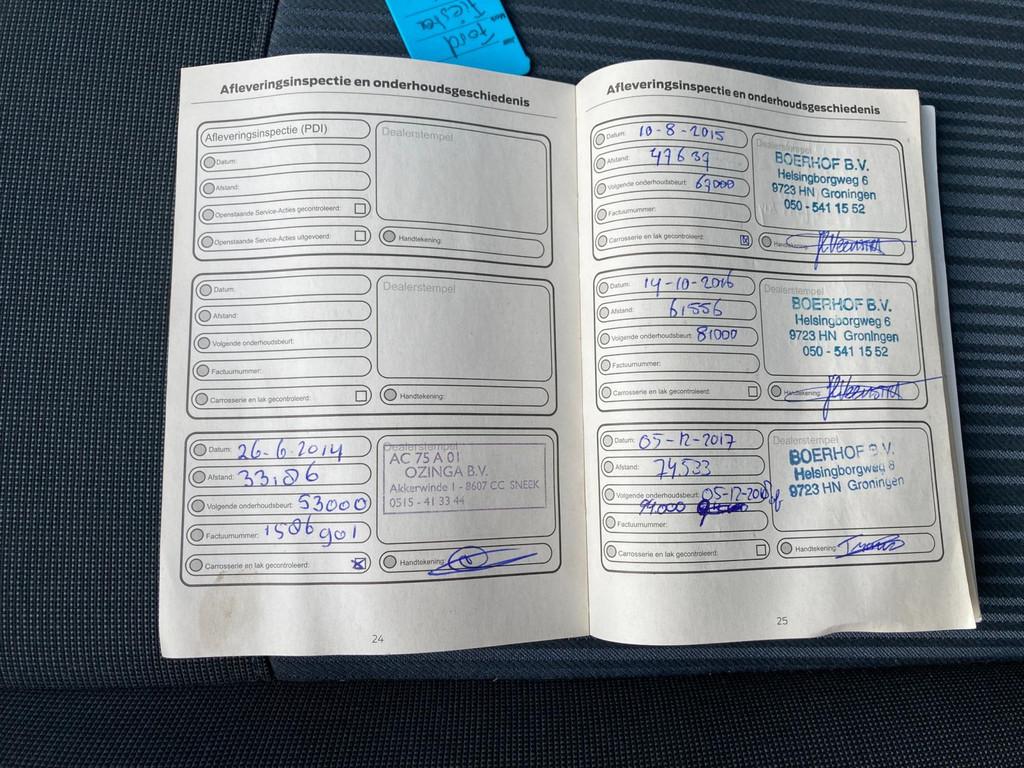 Ford
Fiesta
Afleveringsinspectie en onderhoudsgeschiedenis
Afleveringsinspectie (PDI)
Datum:
Afstand:
Openstaande Service-Acties gecontroleerd:
Openstaande Service-Acties uitgevoerd:
Dealerstempel
Handtekening:
Datum:
Afstand:
Volgende onderhoudsbeurt:
Factuurnummer:
Carrosserie en lak gecontroleerd:
Dealerstempel
Handtekening:
Datum: 26-6-2014
Afstand: 33.186
Volgende onderhoudsbeurt: 53000
Factuurnummer: 1506901
Carrosserie en lak gecontroleerd:
Dealerstempel
AC 75 A 01
OZINGA B.V.
Akkerwinde 1 - 8607 CC SNEEK
0515 - 41 33 44
Handtekening:
24
Afleveringsinspectie en onderhoudsgeschiedenis
Datum: 10-8-2015
Afstand: 49639
Volgende onderhoudsbeurt: 69000
Factuurnummer:
Carrosserie en lak gecontroleerd:
Dealerstempel
BOERHOF B.V.
Helsingborgweg 6
9723 HN Groningen
050 - 541 15 52
Handtekening:
Datum: 14-10-2016
Afstand: 61556
Volgende onderhoudsbeurt: 81000
Factuurnummer:
Carrosserie en lak gecontroleerd:
Dealerstempel
BOERHOF B.V.
Helsingborgweg 6
9723 HN Groningen
050 - 541 15 52
Handtekening:
Datum: 05-12-2017
Afstand: 74533
Volgende onderhoudsbeurt: 05-12-2018 of
94000
Factuurnummer:
Carrosserie en lak gecontroleerd:
Dealerstempel
BOERHOF B.V.
Helsingborgweg 6
9723 HN Groningen
Handtekening:
25